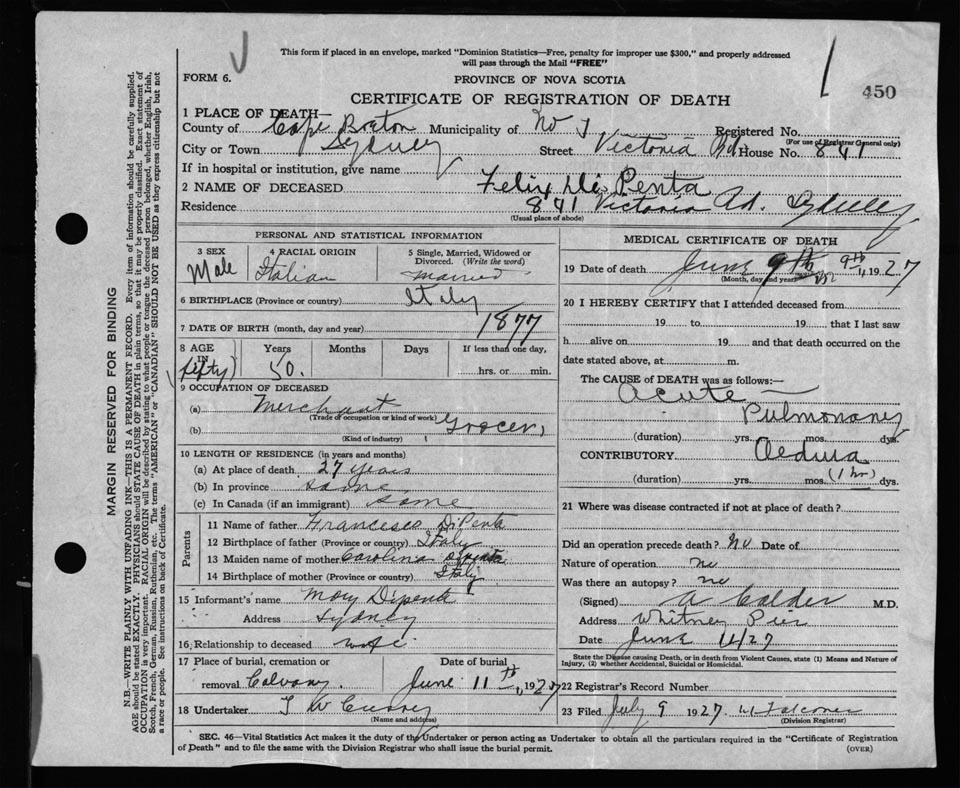 This form if placed in an envelope, marked "Dominion Statistics—Free, penalty for improper use $300," and properly addressed
will pass through the Mail "FREE"
FORM 6.
PROVINCE OF NOVA SCOTIA
450
CERTIFICATE OF REGISTRATION OF DEATH
1 PLACE OF DEATH
County of Cape Breton Municipality of Registered No.
(For use of Registrar General only)
City or Town Sydney Street Victoria Rd. House No. 841
If in hospital or institution, give name
2 NAME OF DECEASED Felix Di Penta
Residence 841 Victoria Rd. Sydney
(Usual place of abode)
PERSONAL AND STATISTICAL INFORMATION
3 SEX Male
4 RACIAL ORIGIN Italian
5 Single, Married, Widowed or Divorced. (Write the word) married
6 BIRTHPLACE (Province or country) Italy
7 DATE OF BIRTH (month, day and year) 1877
8 AGE IN (fifty) Years 50. Months Days If less than one day, hrs. or min.
9 OCCUPATION OF DECEASED
(a) Merchant
(Trade or occupation or kind of work)
(b) Grocery
(Kind of industry)
10 LENGTH OF RESIDENCE (in years and months)
(a) At place of death 27 years
(b) In province same
(c) In Canada (if an immigrant) same
Parents
11 Name of father Francesco DiPenta
12 Birthplace of father (Province or country) Italy
13 Maiden name of mother Carolina
14 Birthplace of mother (Province or country) Italy
15 Informant's name Mary Dipenta
Address Sydney
16 Relationship to deceased wife
17 Place of burial, cremation or removal Calvary. Date of burial June 11th, 1927
18 Undertaker
(Name and address)
MEDICAL CERTIFICATE OF DEATH
19 Date of death June 9th 9th, 1927
(Month, day and year)
20 I HEREBY CERTIFY that I attended deceased from
19 to 19 that I last saw
h alive on 19 and that death occurred on the
date stated above, at m.
The CAUSE OF DEATH was as follows:—
Acute Pulmonary
(duration) yrs. mos. dys.
CONTRIBUTORY Oedma
(duration) yrs. mos. (1 hr) dys.
21 Where was disease contracted if not at place of death?
Did an operation precede death? No Date of
Nature of operation no
Was there an autopsy? no
(Signed) A Calder M.D.
Address Whitney Pier
Date June 11/27
State the Disease causing Death, or in death from Violent Causes, state (1) Means and Nature of
Injury, (2) whether Accidental, Suicidal or Homicidal.
22 Registrar's Record Number
23 Filed July 9 1927 Falconer
(Division Registrar)
SEC. 46—Vital Statistics Act makes it the duty of the Undertaker or person acting as Undertaker to obtain all the particulars required in the "Certificate of Registration
of Death" and to file the same with the Division Registrar who shall issue the burial permit.
(OVER)
MARGIN RESERVED FOR BINDING
N.B.—WRITE PLAINLY WITH UNFADING INK—THIS IS A PERMANENT RECORD. Every item of information should be carefully supplied.
AGE should be stated EXACTLY. PHYSICIANS should STATE CAUSE OF DEATH in plain terms, so that it may be properly classified. Exact statement of
OCCUPATION is very important. RACIAL ORIGIN will be described by stating to what people or tongue the deceased person belonged, whether English, Irish,
Scotch, French, German, Russian, Ruthenian, etc. The terms "AMERICAN" or "CANADIAN" SHOULD NOT BE USED as they express citizenship but not
a race or people. See instructions on back of Certificate.